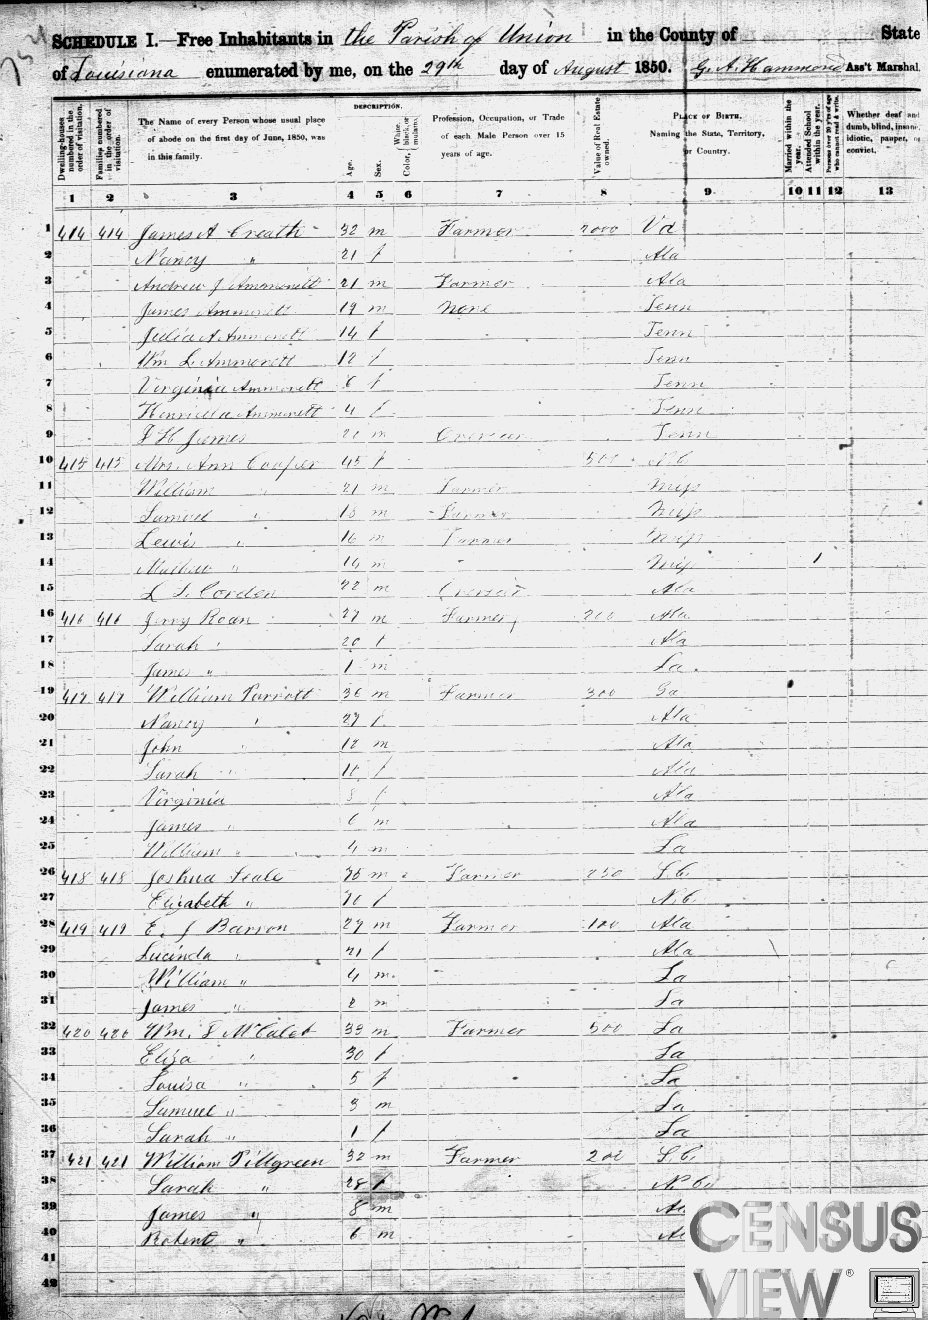 SCHEDULE I.—Free Inhabitants in the Parish of Union in the County of State
of Louisiana enumerated by me, on the 29th day of August 1850. G. A. Hammond Ass't Marshal.
Dwelling-houses numbered in the order of visitation.
Families numbered in the order of visitation.
The Name of every Person whose usual place of abode on the first day of June, 1850, was in this family.
DESCRIPTION.
Age.
Sex.
Color, White, black, or mulatto.
Profession, Occupation, or Trade of each Male Person over 15 years of age.
Value of Real Estate owned.
PLACE OF BIRTH. Naming the State, Territory, or Country.
Married within the year.
Attended School within the year.
Persons over 20 y'rs of age who cannot read & write.
Whether deaf and dumb, blind, insane, idiotic, pauper, or convict.
1 2 3 4 5 6 7 8 9 10 11 12 13
1 414 414 James A Creath 32 m Farmer 2000 Va
2 Nancy " 21 f Ala
3 Andrew J Ammonett 21 m Farmer Ala
4 James Ammonett 19 m None Tenn
5 Julia A Ammonett 14 f Tenn
6 Wm L Ammonett 12 f Tenn
7 Virginia Ammonett 6 f Tenn
8 Henrietta Ammonett 4 f Tenn
9 James m Overseer Tenn
10 415 415 Mrs. Ann Cooper 45 f 500 N.C.
11 William " 21 m Farmer Miss
12 Samuel " m Farmer Miss
13 Lewis " 16 m Farmer Miss
14 " 14 m Miss 1
15 22 m Overseer Ala
16 416 416 Jerry Roan 27 m Farmer 200 Ala
17 Sarah " 20 f Ala
18 James " 1 m La
19 417 417 William Parrott 36 m Farmer 300 Ga
20 Nancy " 27 f Ala
21 John " 12 m Ala
22 Sarah " 10 f Ala
23 Virginia 8 f Ala
24 James " 6 m Ala
25 William " 4 m La
26 418 418 Joshua Seale 75 m Farmer 250 S.C.
27 Elizabeth " 70 f N.C.
28 419 419 E. J Barron 29 m Farmer 100 Ala
29 Lucinda " 21 f Ala
30 William " 4 m La
31 James " 2 m La
32 420 420 Wm. McCaleb 33 m Farmer 500 La
33 Eliza " 30 f La
34 Louisa " 5 f La
35 Samuel " 3 m La
36 Sarah " 1 f La
37 421 421 William Pillgreen 32 m Farmer 200 S.C.
38 Sarah " 28 f
39 James " 8 m
40 Robert " 6 m
41
42
CENSUS
VIEW®